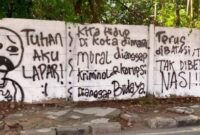 TUHAN
AKU
LAPAR!
Kita Hidup
Di Kota dimana
mural dianggap
Kriminal & korupsi
Dianggap Budaya
Terus
DiBATASi
TAK DIBERI
NASi